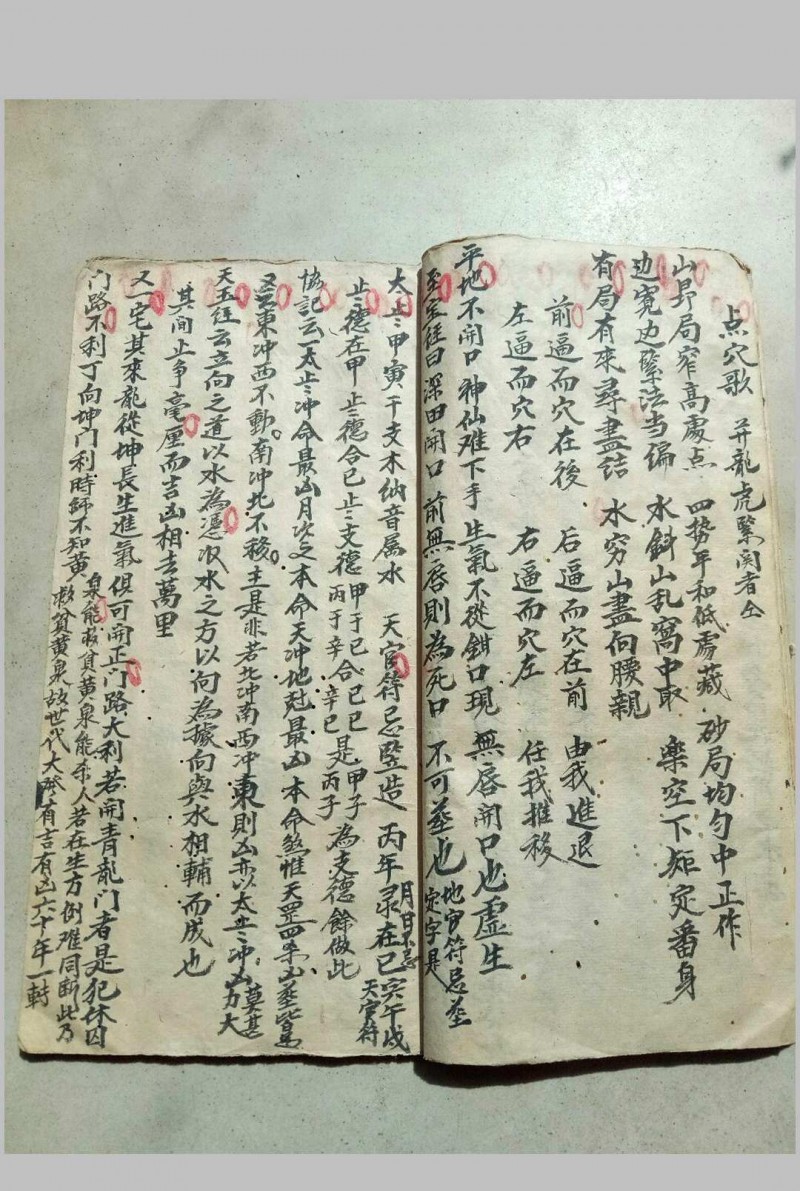 点穴歌　并龍虎緊関者仝
山昻局窄高處点　四势平和低處藏　砂局均匀中正作
边宽边緊法当偏　水斜山乱窩中取　樂空下矩定番身
有局有來尋盡结　水穷山盡向腰親
前逼而穴在後　后逼而穴在前　由我進退
左逼而穴右　右逼而穴左　任我推移
平地不開口　神仙难下手　生氣不從鉗口現　無唇開口也虚生
至宝径曰深田開口　前無唇則為死口　不可葬也　地官符忌葬　定字是
太歲甲寅干支木納音属水　天官符忌竪造　丙年录在巳　月日不忌　寅午戌　天官符
歲德在甲　歲德合己歲支德　甲于己　丙于辛合　己巳　辛巳　是　甲子　丙子　為支德餘倣此
協記云一太歲冲命最凶月次之本命天冲地尅最凶　本命煞惟天罡四柴凶葬皆
又云東冲西不動南冲北不移主是非若北冲南西冲東則凶亦以太歲冲凶方大　莫甚
天玉徑云立向之道以水為憑收水之方以向為據向與水相輔而成也
其间止争毫厘而吉凶相去萬里
又一宅其來龍從坤長生進氣俱可開正门路大利若開青龍门者是犯休囚
门路不利丁向坤门利時師不知黄泉能救貧黄泉能杀人若在生方倒难同断此乃
救貧黄泉故世代大發有吉有凶六十年一轉